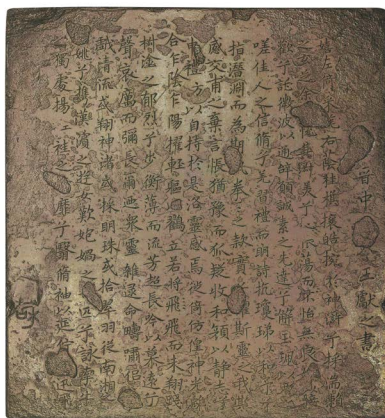 晉中令王獻之書
嬉左倚 右蔭桂旗攘皓捥於神滸兮採湍瀨
之玄芝 悅其淑美兮心振蕩而不怡無良媒以接
歡兮託微波以通辭願誠素之先達兮解玉珮而
嗟佳人之信脩兮羌習禮而明詩抗瓊珶以和予兮
指潛淵而為期執拳拳之款實兮懼斯靈之我欺
感交甫之棄言悵猶豫而狐疑收和顏以靜志兮
申禮方以自持於是洛靈感焉徙倚仿偟神光離
合乍陰乍陽擢軽軀以鶴立若將飛而未翔踐
椒塗之郁烈兮步衡薄而流芳超長吟以慕遠兮
聲哀厲而彌長爾乃眾靈雜遝命疇嘯侶
戲清流或翔神渚或採明珠或拾翠羽從南湘之
姚兮攜漢濱之遊女歎匏媧之 匹兮詠牽牛
獨處揚 袿之 靡兮翳脩袖以延佇 迅飛